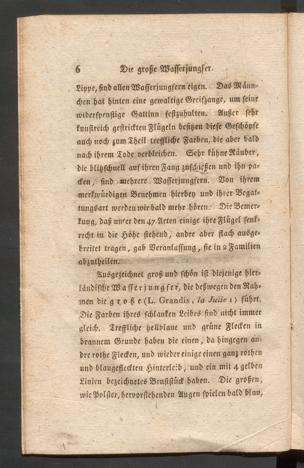 6 Die große Wasserjungfer.
Lippe, sind allen Wasserjungfern eigen. Das Männ-
chen hat hinten eine gewaltige Greifzange, um seine
widerspenstige Gattinn festzuhalten. Außer sehr
kunstreich gestrickten Flügeln besitzen diese Geschöpfe
auch noch zum Theil treffliche Farben, die aber bald
nach ihrem Tode verbleichen. Sehr kühne Räuber,
die blitzschnell auf ihren Fang zuschießen und ihn pa-
cken, sind mehrere Wasserjungfern. Von ihrem
merkwürdigen Benehmen hierbey und ihrer Begat-
tungsart werden wir bald mehr hören. Die Bemer-
kung, daß unter den 47 Arten einige ihre Flügel senk-
recht in die Höhe stehend, andre aber flach ausge-
breitet tragen, gab Veranlassung, sie in 2 Familien
abzutheilen.
Ausgezeichnet groß und schön ist diejenige hier-
ländische Wasserjungfer, die deßwegen den Nah-
men die große (L. Grandis, la Julie 1) führt.
Die Farben ihres schlanken Leibes sind nicht immer
gleich. Treffliche hellblaue und grüne Flecken in
braunem Grunde haben die einen, da hingegen an-
dre rothe Flecken, und wieder einige einen ganz rothen
und blaugefleckten Hinterleib, und ein mit 4 gelben
Linien bezeichnetes Bruststück haben. Die großen,
wie Polster, hervorstehenden Augen spielen bald blau,